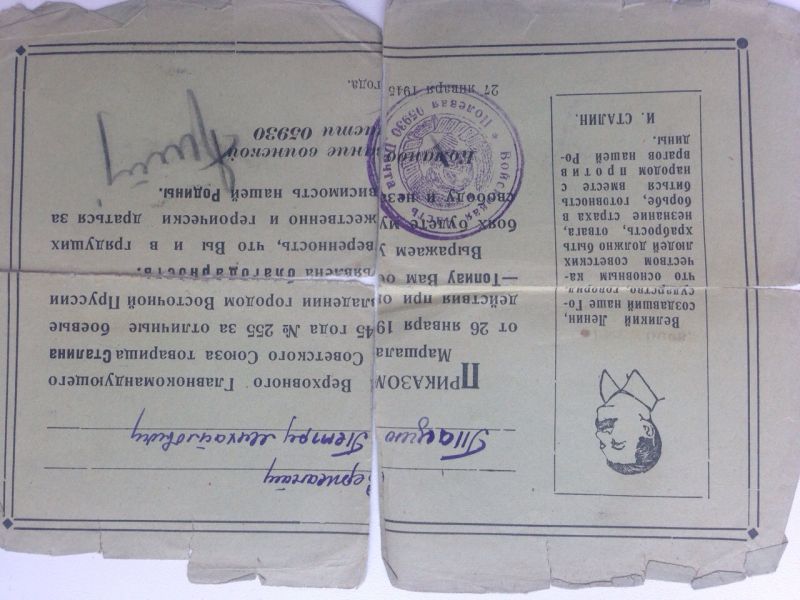 Великий Ленин,
создавший наше Го-
сударство, говорил,
что основным ка-
чеством советских
людей должно быть
храбрость, отвага,
незнание страха в
борьбе, готовность
биться вместе с
народом против
врагов нашей Ро-
дины.
И. СТАЛИН.
Сержанту
Петру Михайловичу
ПРИКАЗОМ Верховного Главнокомандующего
Маршала Советского Союза товарища Сталина
от 26 января 1945 года № 255 за отличные боевые
действия при овладении городом Восточной Пруссии
—Топиау Вам объявлена благодарность.
Выражаем уверенность, что Вы и в грядущих
боях будете мужественно и героически драться за
свободу и независимость нашей Родины.
Командование воинской части 05930
27 января 1945 года.
Войсковая часть * Полевая Почта 05930